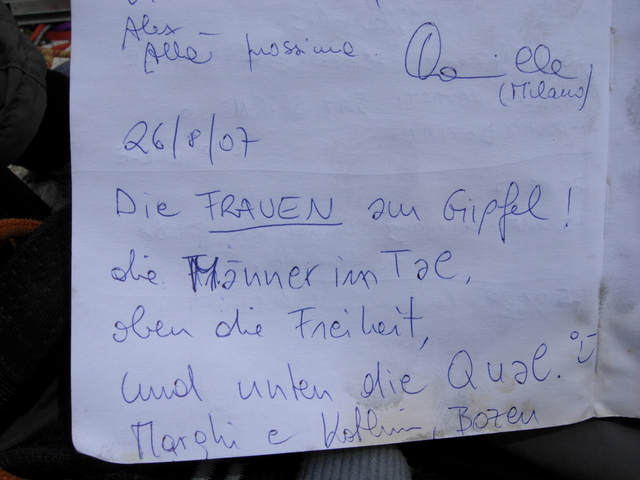 Alex
Alla prossima.
(Milano)
26/8/07
Die FRAUEN am Gipfel!
die Männer im Tal,
oben die Freiheit,
und unten die Qual. :-)
Marghi e Kathrin, Bozen